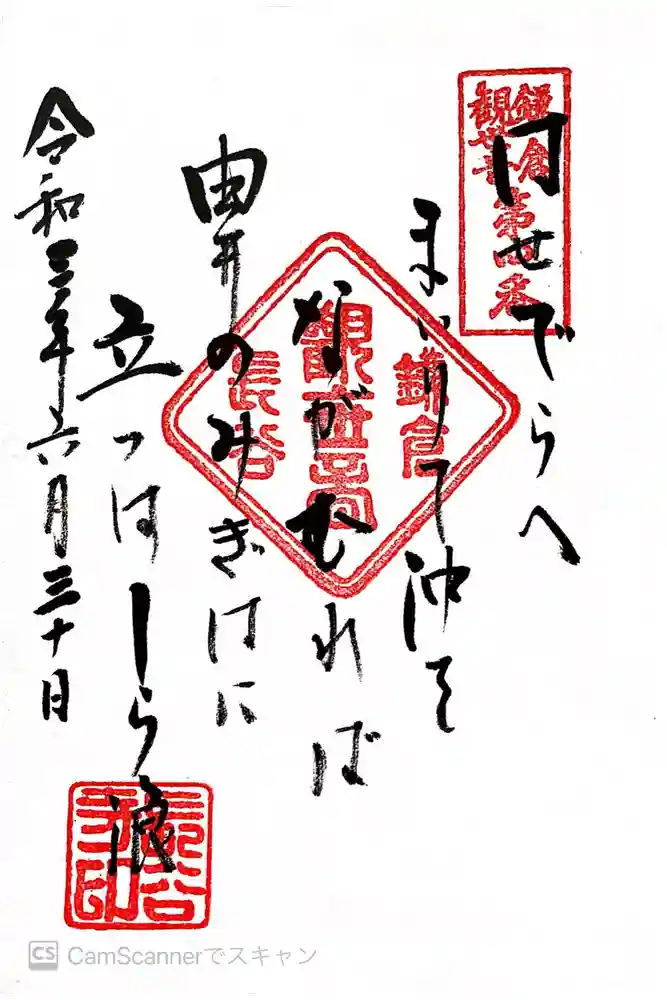 鎌倉
観世音
第四番
はせでらへ
まいりて沖を
ながむれば
由井のみぎはに
立つはしら浪
令和三年六月三十日
鎌倉
観世音
長谷
CS CamScannerでスキャン